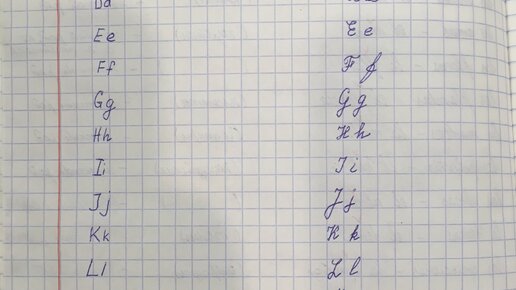 Dd
Ee Ee
Ff Ff
Gg Gg
Hh Hh
Ii Ii
Jj Jj
Kk Kk
Ll Ll